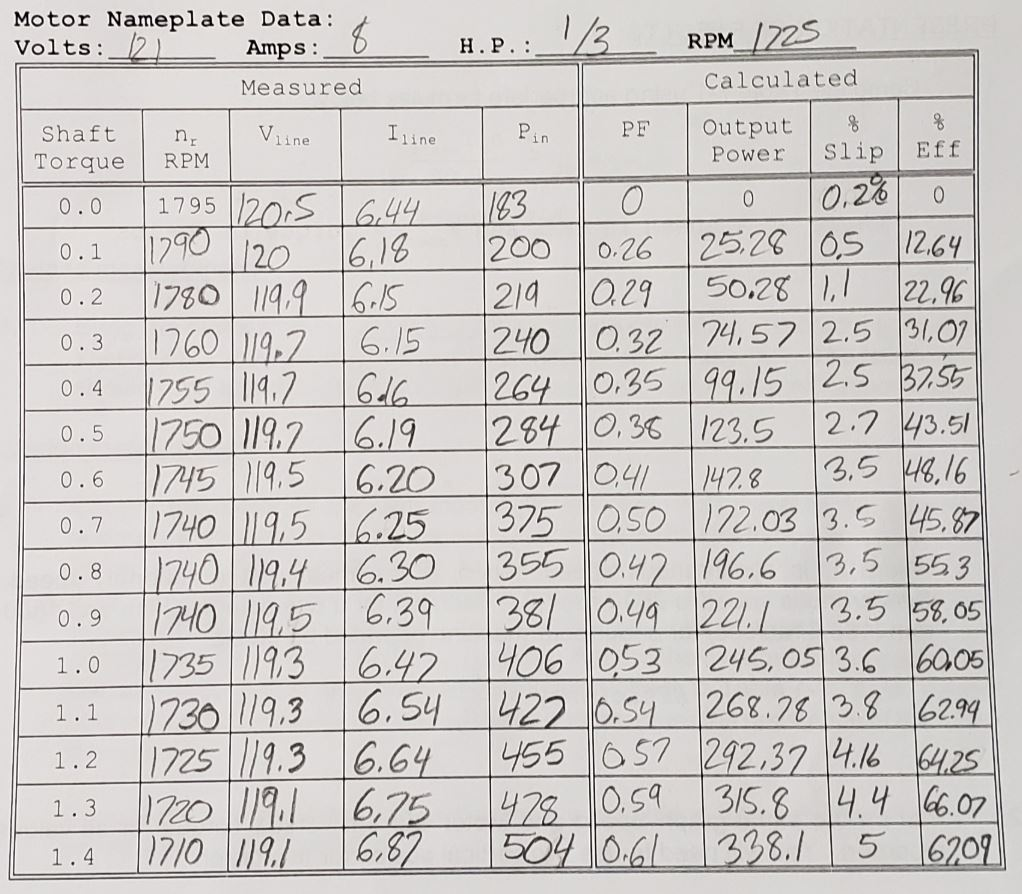 Motor Nameplate Data:
Volts: 121 Amps: 8 H.P.: 1/3 RPM 1725
Measured Calculated
Shaft Torque nr RPM Vline Iline Pin PF Output Power % Slip % Eff
0.0 1795 120.5 6.44 183 0 0 0.2% 0
0.1 1790 120 6.18 200 0.26 25.28 0.5 12.64
0.2 1780 119.9 6.15 219 0.29 50.28 1.1 22.96
0.3 1760 119.7 6.15 240 0.32 74.57 2.5 31.07
0.4 1755 119.7 6.16 264 0.35 99.15 2.5 37.55
0.5 1750 119.7 6.19 284 0.38 123.5 2.7 43.51
0.6 1745 119.5 6.20 307 0.41 147.8 3.5 48.16
0.7 1740 119.5 6.25 375 0.50 172.03 3.5 45.87
0.8 1740 119.4 6.30 355 0.47 196.6 3.5 55.3
0.9 1740 119.5 6.39 381 0.49 221.1 3.5 58.05
1.0 1735 119.3 6.47 406 0.53 245.05 3.6 60.05
1.1 1730 119.3 6.54 427 0.54 268.78 3.8 62.99
1.2 1725 119.3 6.64 455 0.57 292.37 4.16 64.25
1.3 1720 119.1 6.75 478 0.59 315.8 4.4 66.07
1.4 1710 119.1 6.87 504 0.61 338.1 5 67.09